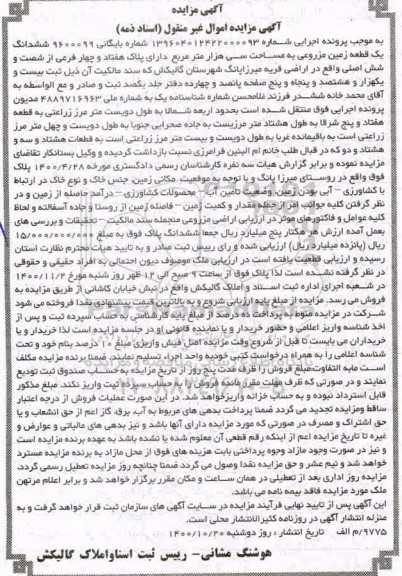 آگهی مزایده
آگهی مزایده اموال غیر منقول (اسناد ذمه)
به موجب پرونده اجرایی شماره ۱۳۹۶۰۴۰۱۲۴۲۲۰۰۰۰۹۳ شماره بایگانی ۹۶۰۰۰۹۹ ششدانگ
یک قطعه زمین مزروعی به مساحت سی هزار متر مربع دارای پلاک هفتاد و چهار فرعی از شصت و
شش اصلی واقع در اراضی قریه میرزاپانگ شهرستان گالیکش که سند مالکیت آن ذیل ثبت بیست و
یکهزار و هشتصد و پنجاه و پنج صفحه پانصد و چهارده دفتر جلد یکصد ثبت و صادر و مع الواسطه به
آقای محمد خانه ششدر فرزند غلامحسن شماره شناسنامه یک به شماره ملی ۴۸۸۹۷۱۶۹۶۳ مدیون
پرونده اجرایی فوق منتقل شده است بحدود اربعه شمالا به طول دویست متر مرز زراعتی به قطعه
هفتاد و پنج شرقا به طول هشتاد متر مرزیست به جاده صحرایی جنوبا به طول دویست و چهل متر مرز
زراعتی است به باقیمانده غربا به طول دویست و بیست متر مرز زراعتی است به قطعات هشتاد و سه و
هشتاد و دو که در قبال طلب خانم ام البنین فرامرزی نسبت بازداشت گردیده و وکیل بستانکار تقاضای
مزایده نموده و برابر گزارش هیات سه نفره کارشناسان رسمی دادگستری مورخه ۱۴۰۰/۴/۲۸ پلاک
فوق واقع در روستای میرزا پانگ و با توجه به موقعیت مکانی زمین، جنس خاک و نوع خاک در ارتباط
با کشاورزی - آبی بودن زمین، وضعیت تامین آب - محصولات کشاورزی - درآمد حاصله از زمین و در
نظر گرفتن کلیه جوانب امر از جمله مقدار و کمیت زمین - فاصله زمین از روستا و جاده آسفالته و لحاظ
کلیه عوامل و فاکتورهای موثر در ارزیابی اراضی مزروعی منجمله سند مالکیت - تحقیقات و بررسی های
بعمل آمده ارزش هر هکتار پنج میلیارد ریال جمعا ششدانگ پلاک فوق به مبلغ ۱۵/۰۰۰/۰۰۰/۰۰۰
ریال (پانزده میلیارد ریال) ارزیابی شده و رای رییس ثبت صادر و به تایید هیات محترم نظارت استان
رسیده و ارزیابی قطعیت یافته است در ارزیابی ملک موصوف دیون احتمالی به افراد حقیقی و حقوقی
در نظر گرفته نشده است لذا پلاک فوق از ساعت ۹ صبح الی ۱۲ ظهر روز شنبه مورخ ۱۴۰۰/۱۱/۲
در شعبه اجرای اداره ثبت اسناد و املاک گالیکش واقع در نبش خیابان کاشانی از طریق مزایده به
فروش می رسد. مزایده از مبلغ پایه ارزیابی شروع و به بالاترین قیمت پیشنهادی نقدا فروخته می شود
شرکت در مزایده منوط به پرداخت ده درصد از مبلغ پایه کارشناسی به حساب سپرده ثبت و پس از
اخذ شناسه واریز اعلامی و حضور خریدار و یا نماینده قانونی او در جلسه مزایده است لذا خریدار و یا
خریداران می بایست تا قبل از شروع وقت مزایده اصل فیش واریزی مبلغ ۱۰ درصد بنام خود و تحت
شناسه اعلامی را به همراه درخواست کتبی خود به واحد اجراء تسلیم نمایند. ضمنا برنده مزایده مکلف
است مابه التفاوت مبلغ فروش را ظرف مدت پنج روز از تاریخ مزایده به حساب صندوق ثبت تودیع
نمایند و در صورتی که ظرف مهلت مقرر مانده فروش را به حساب سپرده ثبت واریز نکند. مبلغ مذکور
قابل استرداد نبوده و به حساب خزانه واریز خواهد شد. در این صورت عملیات فروش از درجه اعتبار
ساقط ومزایده تجدید می گردد ضمنا پرداخت بدهی های مربوط به آب، برق، گاز اعم از حق انشعاب و یا
حق اشتراک و مصرف در صورتی که مورد مزایده دارای آنها باشد و نیز بدهی های مالیاتی و عوارض و
غیره تا تاریخ مزایده اعم از اینکه رقم قطعی آن معلوم شده یا نشده باشد به عهده برنده مزایده است
و نیز در صورت وجود مازاد وجوه پرداختی بابت هزینه های فوق از محل مازاد به برنده مزایده مسترد
خواهد شد و نیم عشر و حق مزایده نقدا وصول می گردد ضمنا چنانچه روز مزایده تعطیل رسمی گردد،
مزایده روز اداری بعد از تعطیلی در همان ساعت و مکان مقرر برگزار خواهد شد و برابر اعلام مرتهن
ملک مورد مزایده فاقد بیمه نامه می باشد.
این آگهی پس از تایید نهایی فرآیند مزایده در سایت آگهی های سازمان ثبت قرار خواهد گرفت و به
منزله انتشار آگهی در روزنامه کثیرالانتشار محلی است.
۹۷۷۵/م الف تاریخ انتشار : روز دوشنبه ۱۴۰۰/۱۰/۲۰
هوشنگ مشانی- رییس ثبت اسناواملاک گالیکش